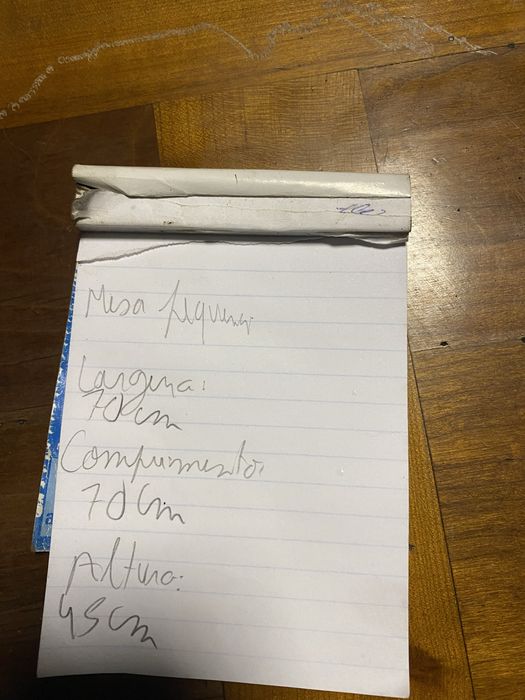 Mesa pequena
Largura:
70cm
Comprimento:
70cm
Altura:
45cm